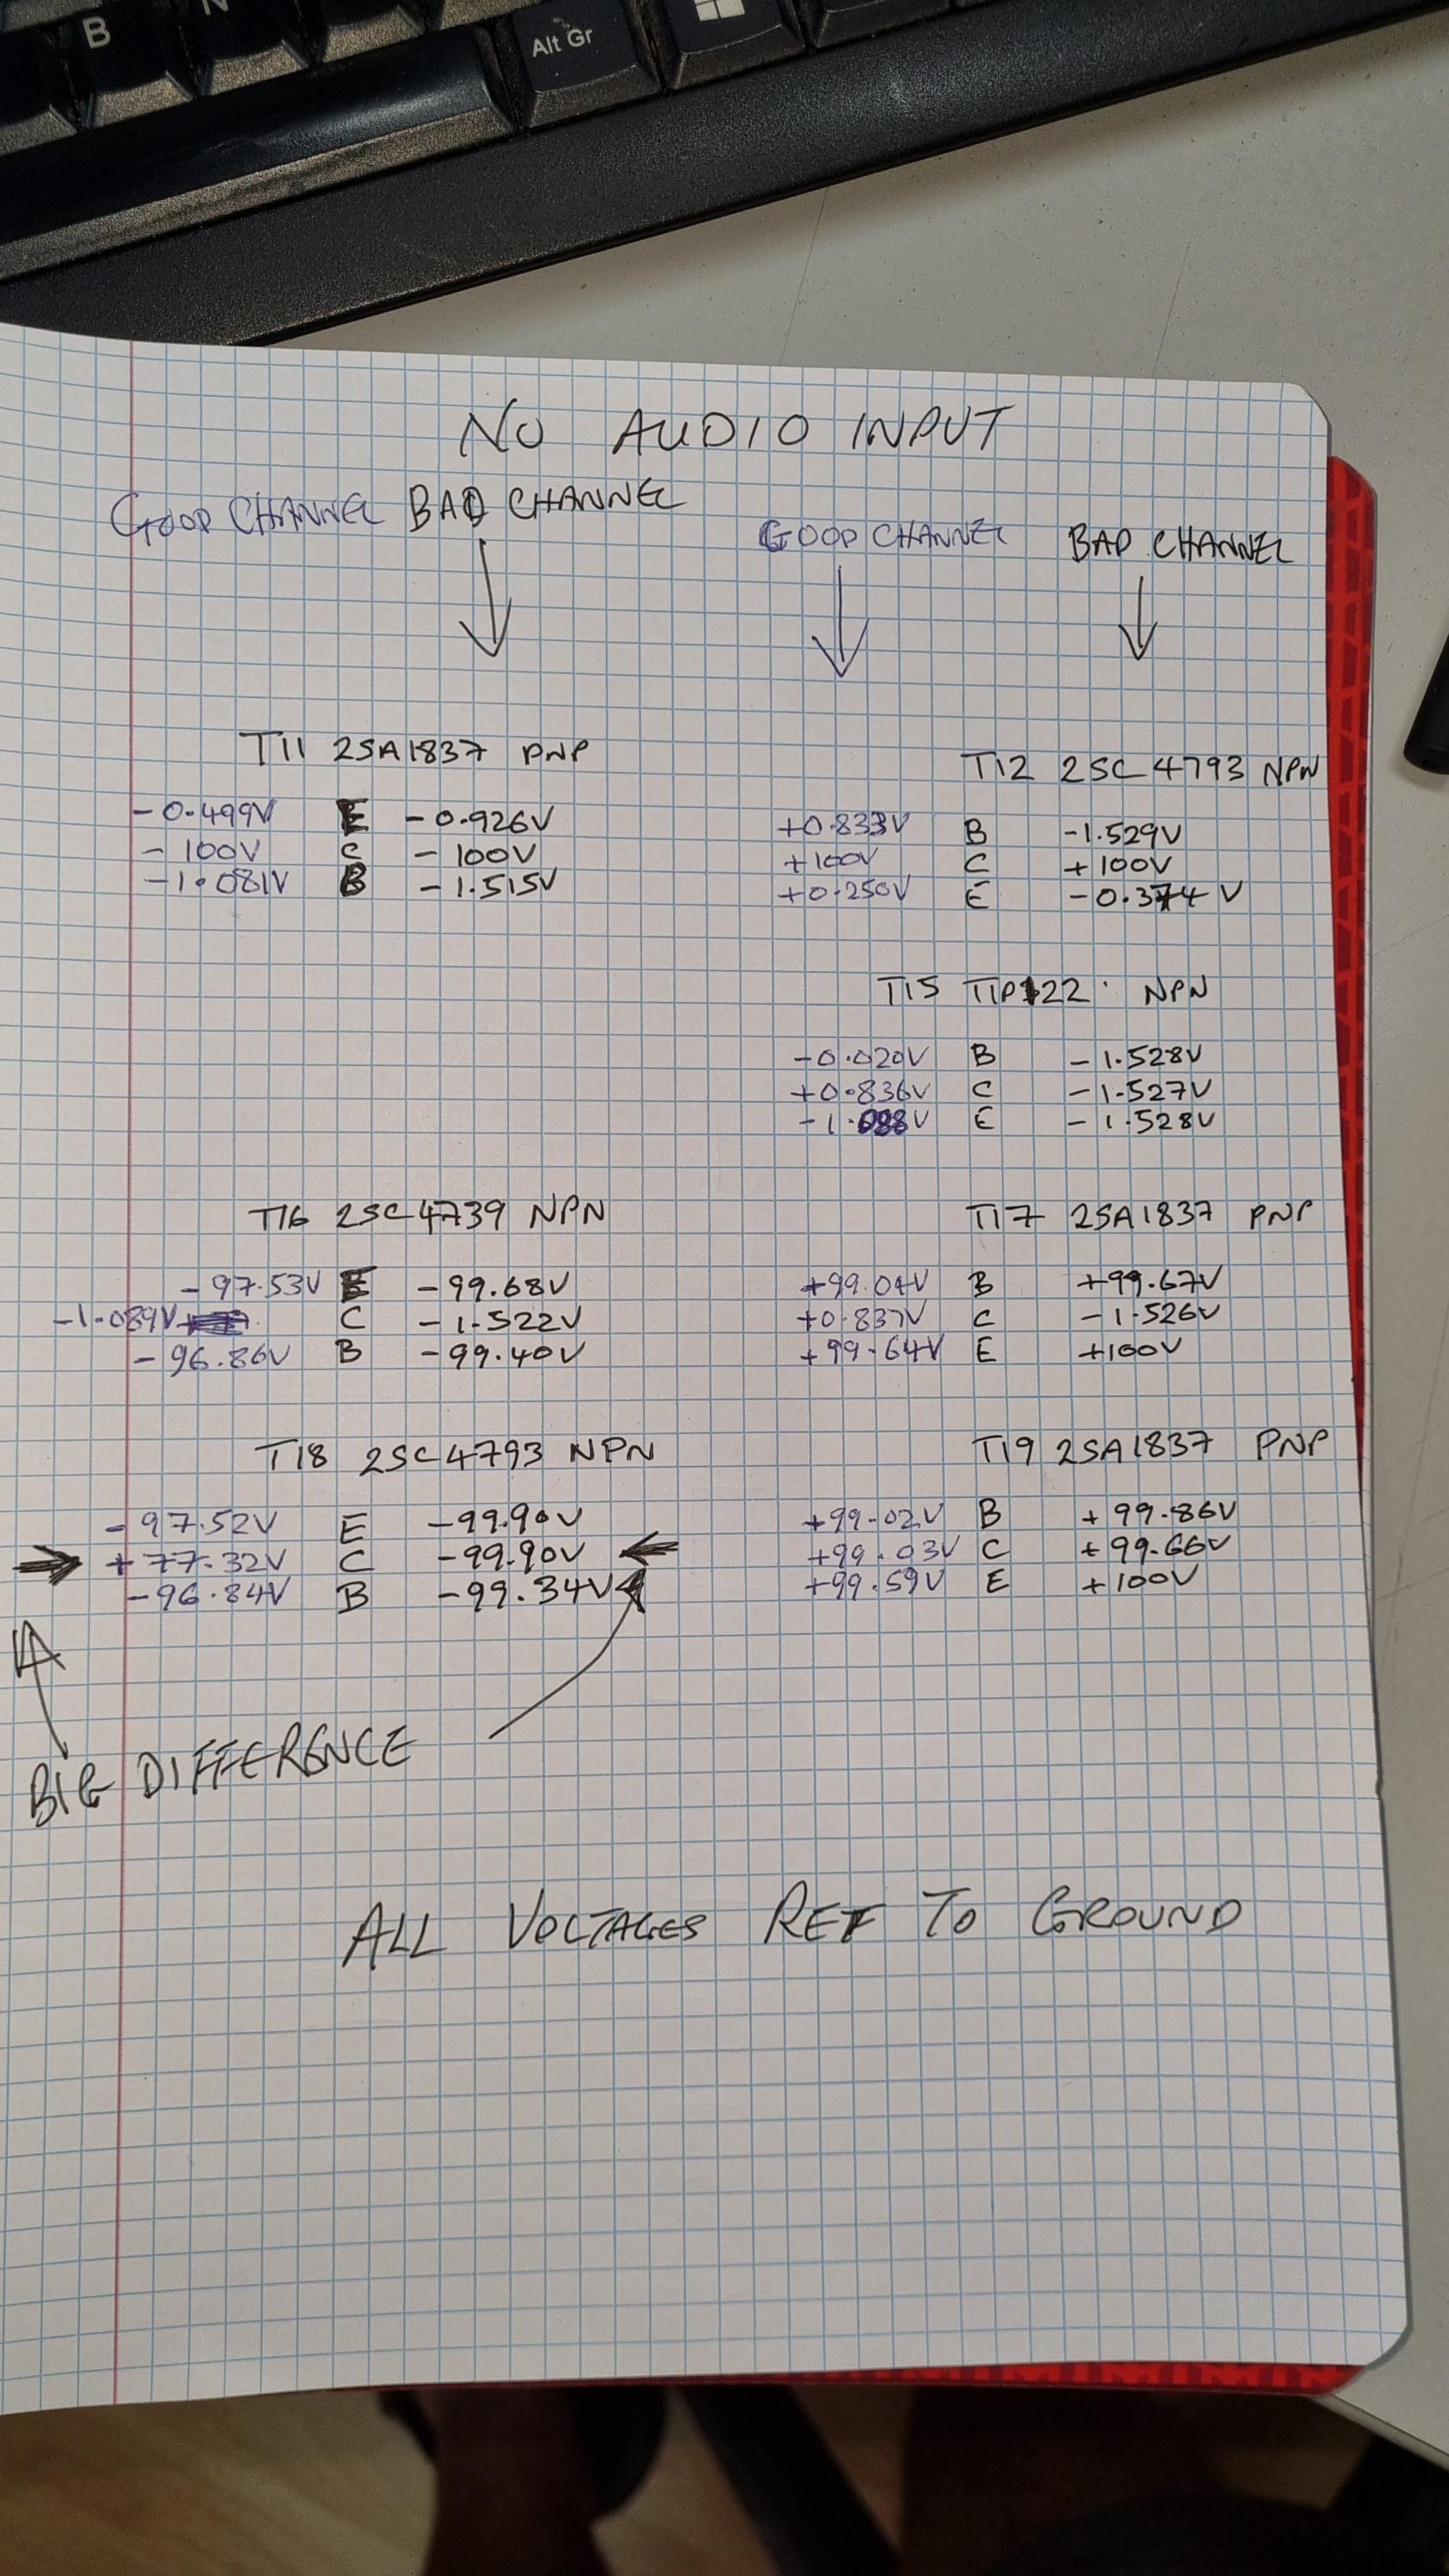 B N
Alt Gr
NO AUDIO INPUT
GOOD CHANNEL BAD CHANNEL
GOOD CHANNEL BAD CHANNEL
T11 2SA1837 PNP
-0.499V E -0.926V
-100V C -100V
-1.081V B -1.515V
T12 2SC4793 NPN
+0.833V B -1.529V
+100V C +100V
+0.250V E -0.374V
T15 TIP122 NPN
-0.020V B -1.528V
+0.836V C -1.527V
-1.088V E -1.528V
T16 2SC4739 NPN
-97.53V E -99.68V
-1.089V C -1.522V
-96.86V B -99.40V
T17 2SA1837 PNP
+99.04V B +99.67V
+0.837V C -1.526V
+99.64V E +100V
T18 2SC4793 NPN
-97.52V E -99.90V
+77.32V C -99.90V
-96.84V B -99.34V
T19 2SA1837 PNP
+99.02V B +99.86V
+99.03V C +99.66V
+99.59V E +100V
BIG DIFFERENCE
ALL VOLTAGES REF TO GROUND